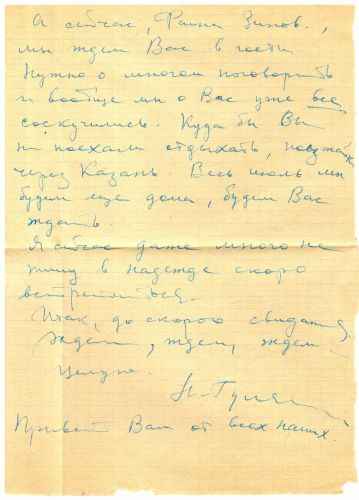 А сейчас, Фаина Зинов.,
мы ждем Вас в гости
Нужно о многом поговорить
и вообще мы о Вас уже все
соскучились. Куда бы Вы
ни поехали отдыхать, поезжайте
через Казань. Весь июль мы
будем еще дома, будем Вас
ждать.
Я сейчас даже много не
пишу в надежде скоро
встретиться.
Итак, до скорого свидания.
Ждем, ждем, ждем
Целую.
Привет Вам от всех наших.